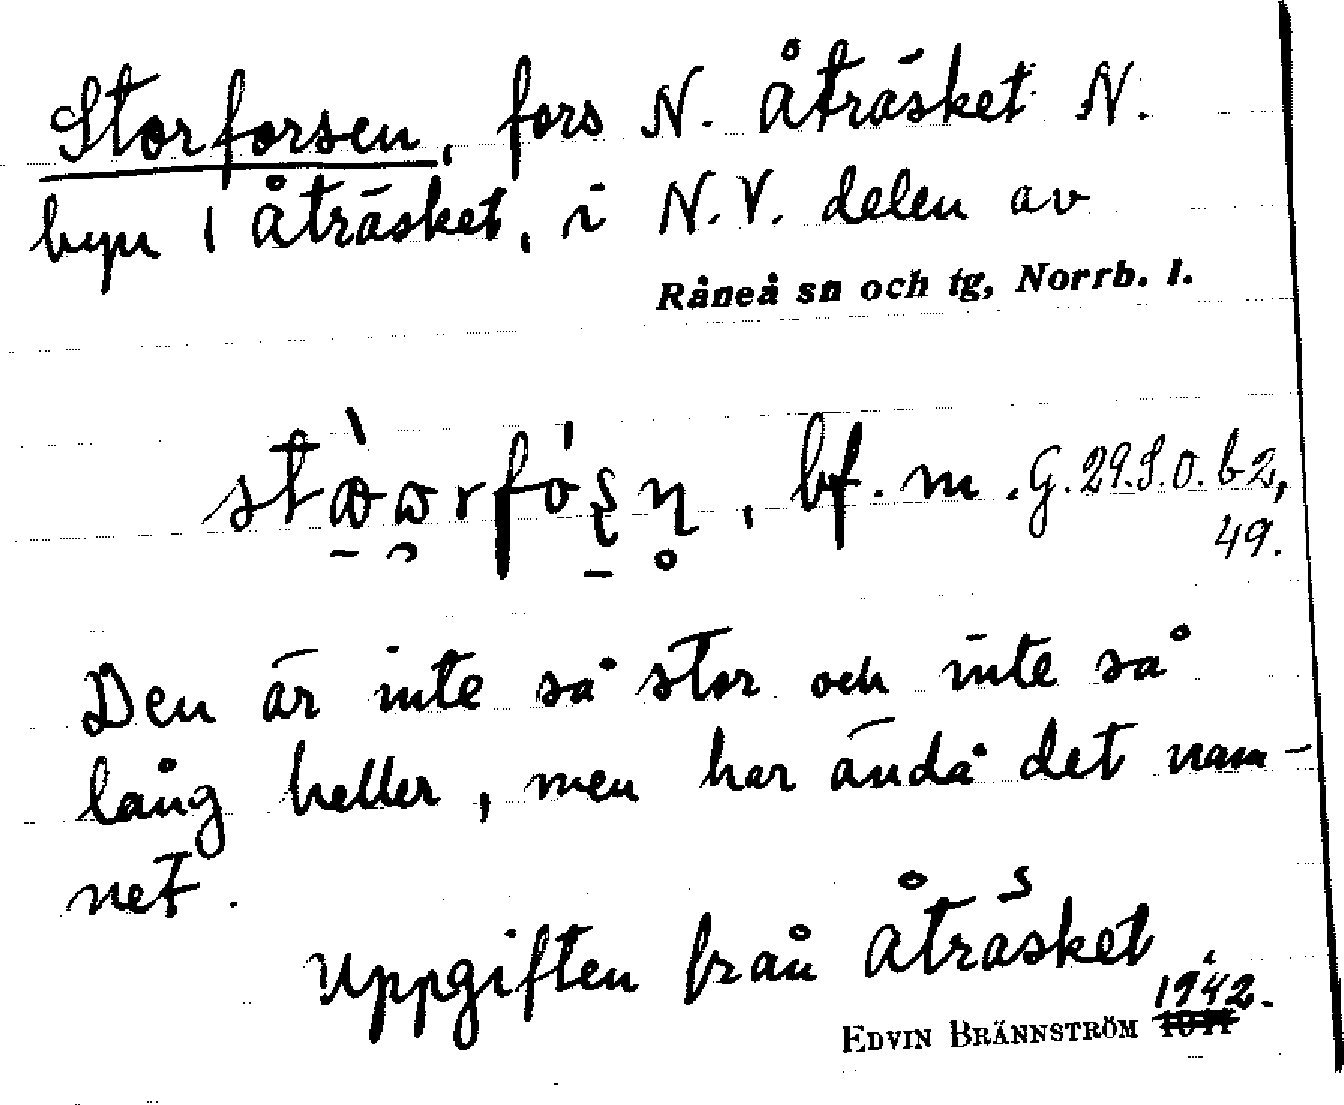 Storforsen, fors N. Åträsket N.
byn i Åträsket, i N.V. delen av
Råneå sn och tg, Norrb. l.
bf. m. G. 29.S.O. b2,
49.
Den är inte så stor och inte så
lång heller, men har ändå det nam-
net.
Uppgiften från Åträsket
1942.
EDVIN BRÄNNSTRÖM